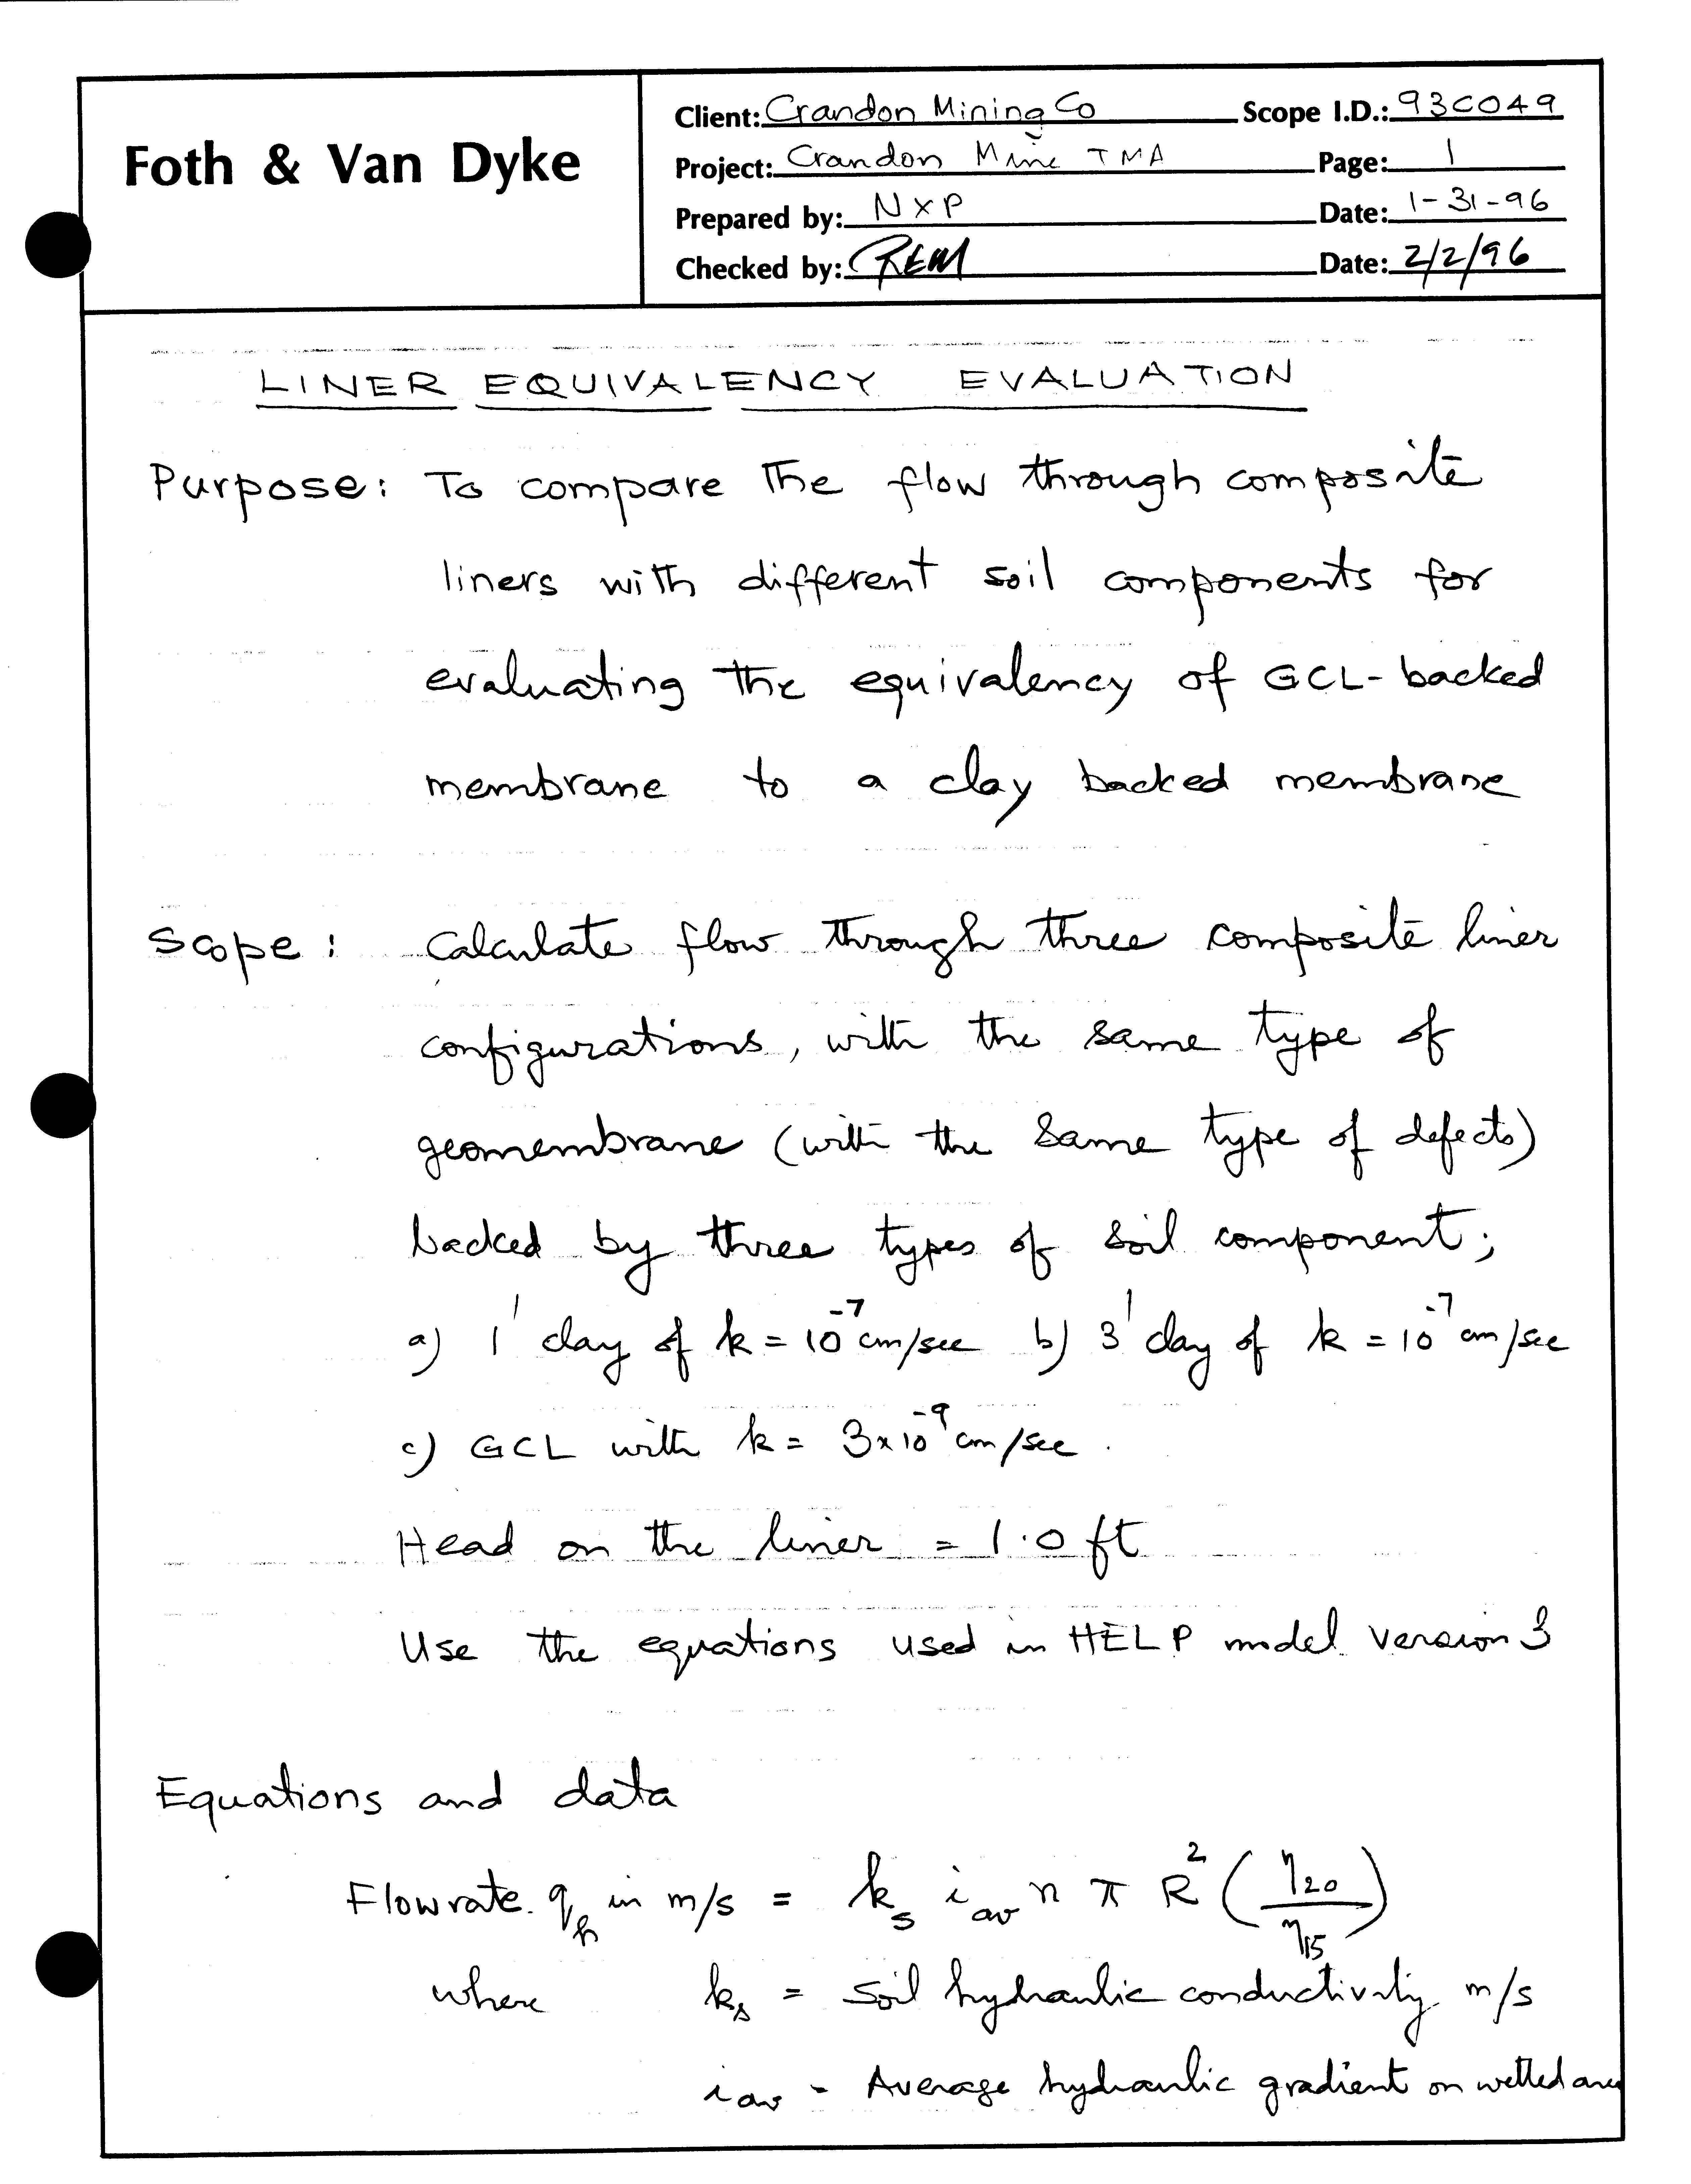 Foth & Van Dyke
Client: Crandon Mining Co Scope I.D.: 93C049
Project: Crandon Mine TMA Page: 1
Prepared by: NXP Date: 1-31-96
Checked by: REM Date: 2/2/96
LINER EQUIVALENCY EVALUATION
Purpose: To compare the flow through composite
liners with different soil components for
evaluating the equivalency of GCL-backed
membrane to a clay backed membrane
Scope: Calculate flow through three composite liner
configurations, with the same type of
geomembrane (with the same type of defects)
backed by three types of soil component;
a) 1' clay of k = 10⁻⁷ cm/sec b) 3' clay of k = 10⁻⁷ cm/sec
c) GCL with k = 3x10⁻⁹ cm/sec.
Head on the liner = 1.0 ft
Use the equations used in HELP model version 3
Equations and data
Flowrate q_h in m/s = k_s i_av n π R² (η₂₀/η₁₅)
where k_s = soil hydraulic conductivity m/s
i_av = Average hydraulic gradient on wetted area